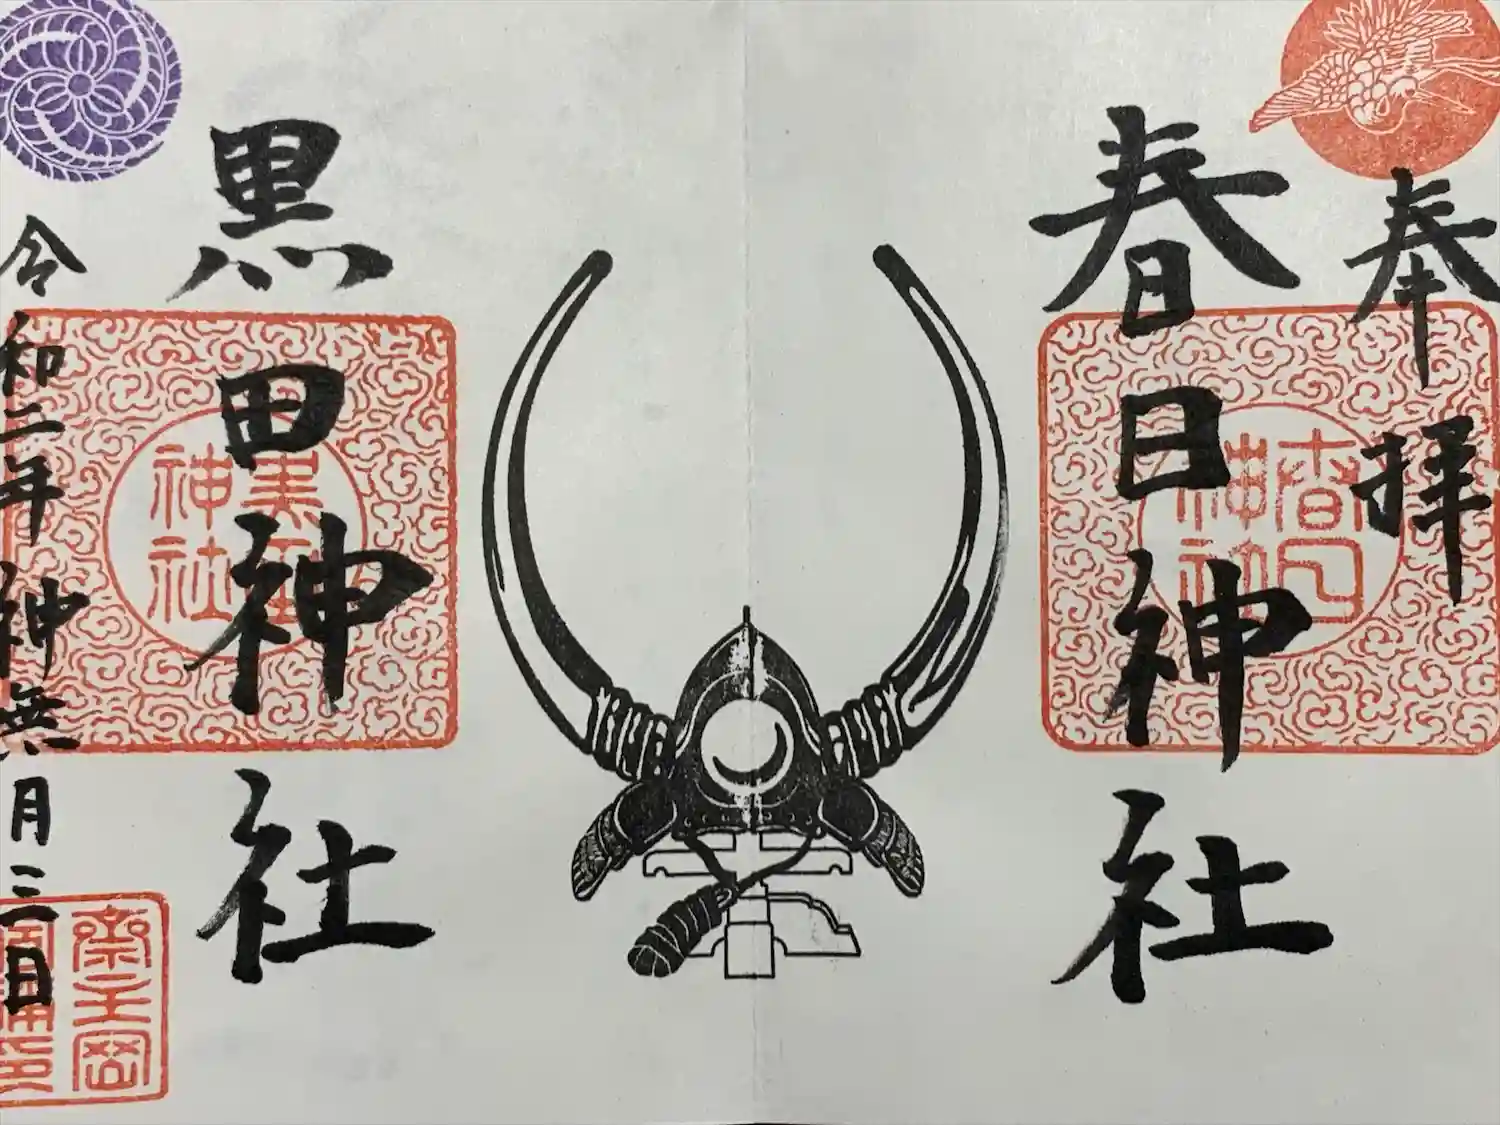 奉拝
春日神社
春日神社
黒田神社
黒田神社
令和二年神無月三日